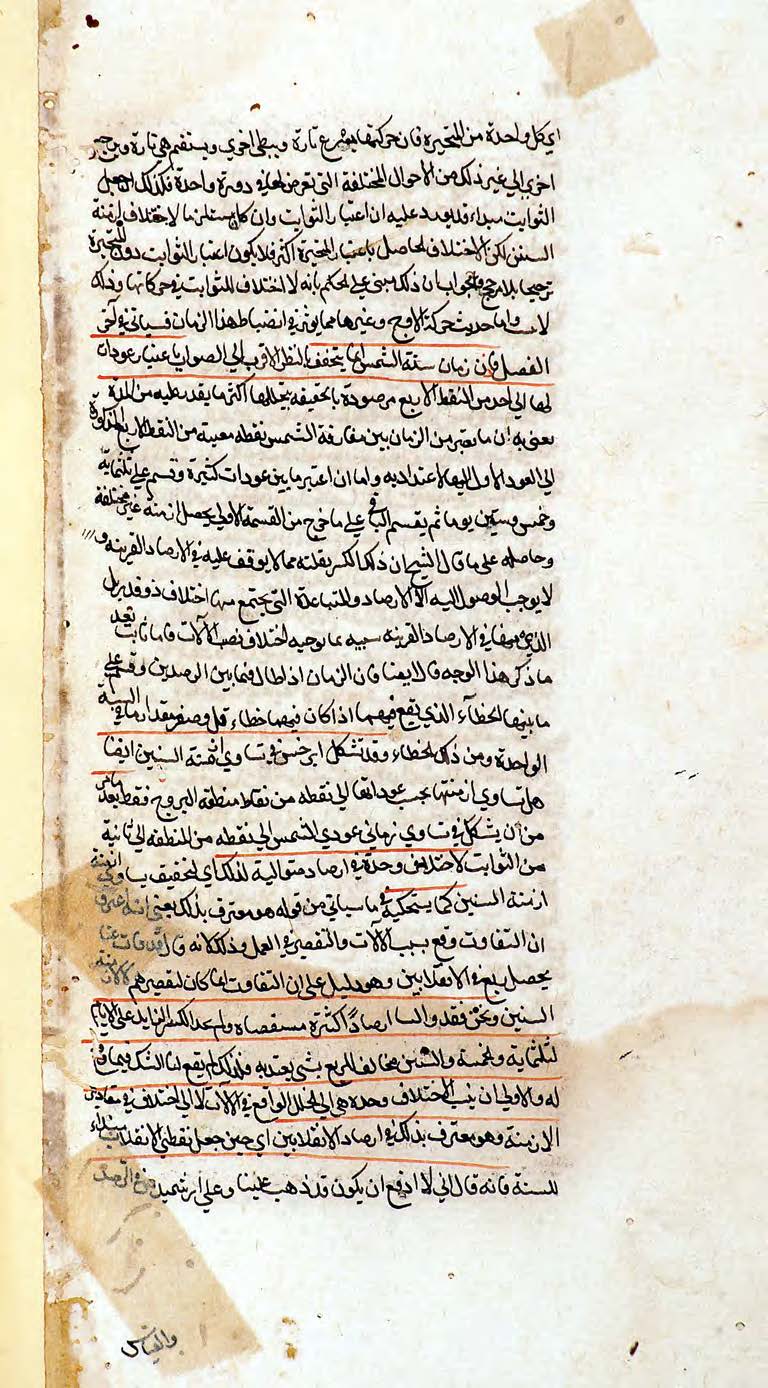 اي كل واحدة من المتحيرة فان حركتها يسرع تارة ويبطي اخري ويستقيم هي تارة ويرجع
اخري الي غير ذلك من الاحوال المختلفة التي تعرض لها في دورة واحدة فلذلك لم يجعل
الثوابت مبداء قد يورد عليه ان اعتبار الثوابت وان كان مستلزما لاختلاف ازمنة
السنين لكن الاختلاف الحاصل باعتبار المتحيرة اكثر فلا يكون اعتبار الثوابت دون المتحيرة
ترجيحا بلا مرجح والجواب ان ذلك مبني علي الحكم بانه لا اختلاف للثوابت في حركاتها وذلك
واما حديث حركة الاوج وغيرها مما يؤثر في انضباط هذا الزمان فسياتي في آخر
الفصل فان زمان سنة الشمس انما يتحقق بالنظر الاقرب الي الصواب باعتبار عودات
لها الي احد من النقط الاربع مرصودة بالحقيقة يتخللها اكثر ما يقدر عليه من المدة
يعني به ان ما يعتبر من الزمان بين مفارقة الشمس نقطة معينة من النقط الاربع المذكورة
الي العود الاول اليها لا اعتداد به واما ان اعتبر ما بين عودات كثيرة وقسم علي ثلثماية
وخمس وستين يوما ثم يقسم الباقي علي ما خرج من القسمة الاولي يحصل ازمنة غير مختلفة
وحاصله علي ما قال الشيخ ان ذلك الكسر بقلته مما لا يوقف عليه في الارصاد القريبة و
لا يوجب الوصول اليه الا الارصاد المتباعدة التي يجتمع منها اختلاف ذو قدر بل
الذي في الارصاد القريبة سببه ما يوجبه اختلاف نصب الآلات
ما ذكر هذا الوجه قال ايضا فان الزمان اذا طال فيما بين الرصدين وقسم علي
ما بينهما الخطاء الذي يقع فيهما اذا كان فيهما خطاء قل وصغر مقدار ما في السنة
الواحدة من ذلك الخطاء وقد تشكل ابرخس في تساوي ازمنة السنين ايضا
هل تساوي ازمنتها بحسب عوداتها الي نقطة من نقاط منطقة البروج فقط بعد
من ان يشكل في تساوي زماني عودتي الشمس الي نقطة من المنطقة الي ثانية
من الثوابت لاختلاف وجده في ارصاد متوالية لذلك اي لتحقيق تساوي
ازمنة السنين كما يستحكيه في ما سياتي من قوله هو معترف بذلك يعني انه اعترف
ان التفاوت وقع بسبب الآلات والتقصير في العمل وذلك لانه قال
يحصل ربع في الانقلابين وهو دليل علي ان التفاوت انما كان لتقصيرهم
السنين ونحن فقد والينا ارصادا كثيرة مستقصاة ولم نجد الكسر الزايد علي الايام
الثلثماية والخمسة والستين مخالف للربع بشي يعتد به فلذلك لم يقع لنا الشك فيما وقع
له والاولي ان ينسب الاختلاف وحده هي الي الخلل الواقع في الآلات لا الي اختلاف في مقادير
الازمنة وهو معترف بذلك في ارصاد الانقلابين اي حين جعل نقطتي الانقلاب مبتداء
للسنة فانه قال اني لا ادفع ان يكون قد ذهب علينا وعلي ارشميدس في الرصد
والقياس